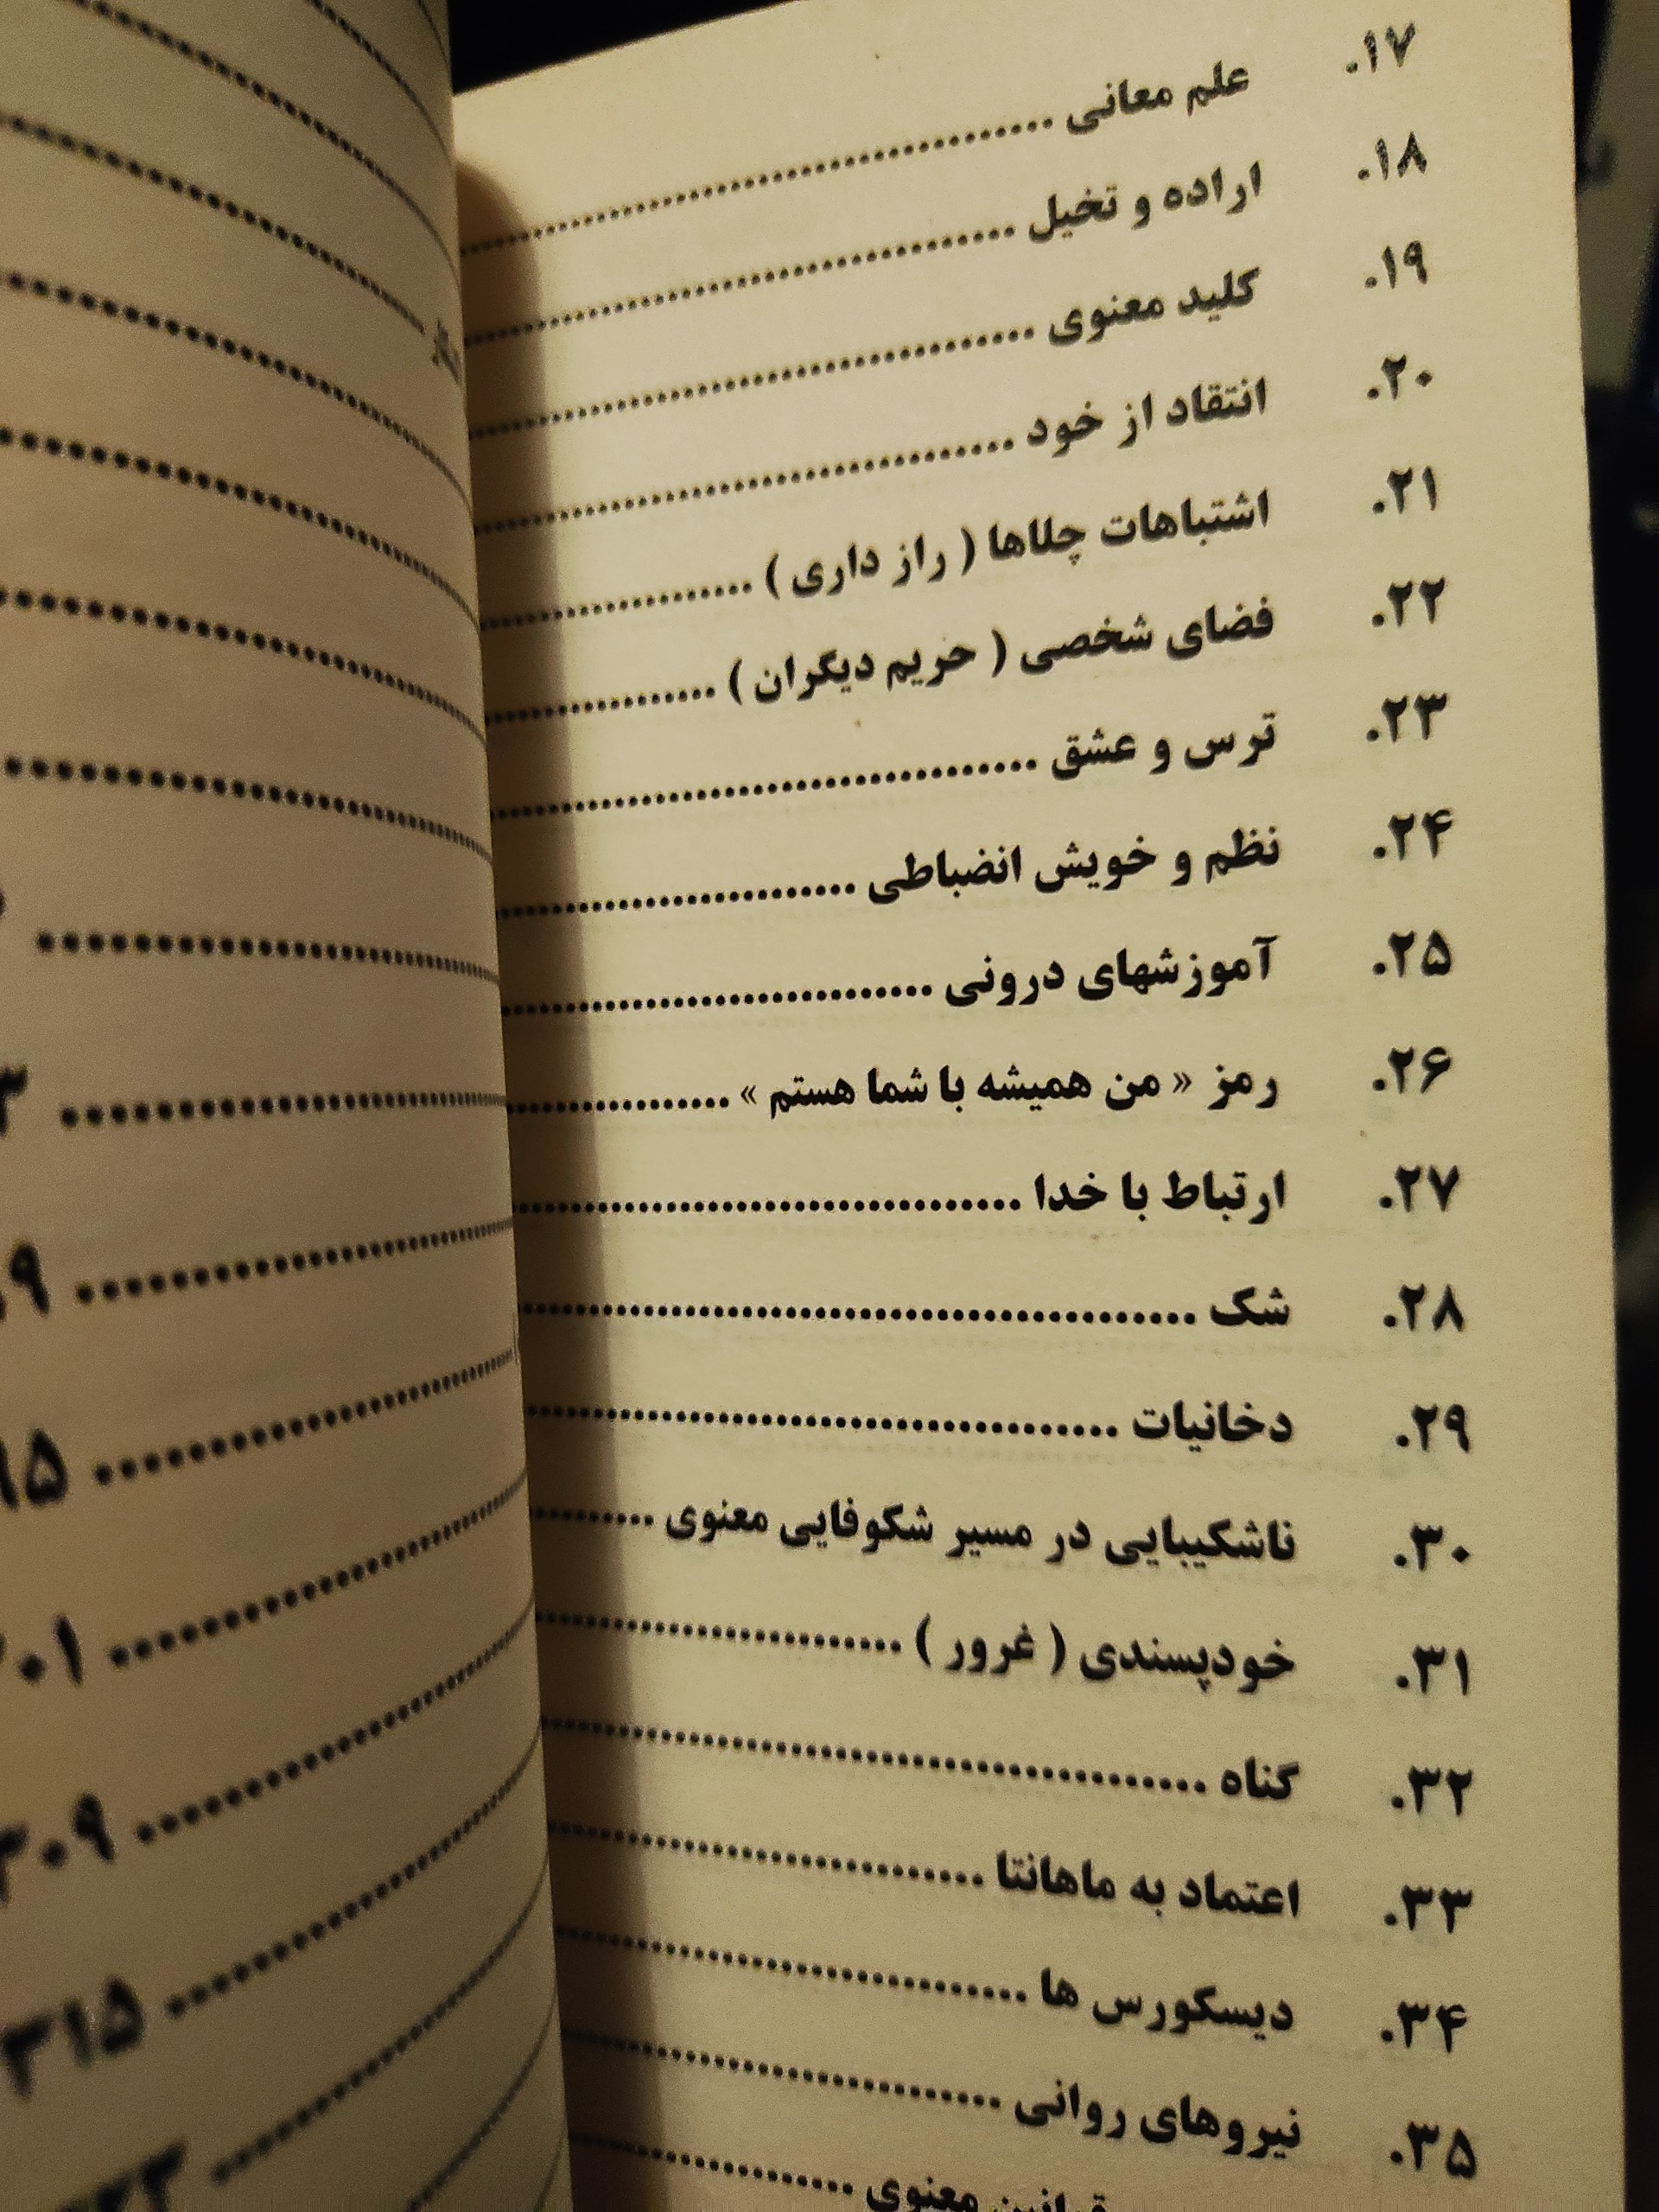 ۱۷. علم معانی ........................
۱۸. اراده و تخیل ........................
۱۹. کلید معنوی ........................
۲۰. انتقاد از خود ........................
۲۱. اشتباهات چلاها ( راز داری ) ........................
۲۲. فضای شخصی ( حریم دیگران ) ........................
۲۳. ترس و عشق ........................
۲۴. نظم و خویش انضباطی ........................
۲۵. آموزشهای درونی ........................
۲۶. رمز « من همیشه با شما هستم » ........................
۲۷. ارتباط با خدا ........................
۲۸. شک ........................
۲۹. دخانیات ........................
۳۰. ناشکیبایی در مسیر شکوفایی معنوی ........................
۳۱. خودپسندی ( غرور ) ........................
۳۲. گناه ........................
۳۳. اعتماد به ماهانتا ........................
۳۴. دیسکورس ها ........................
۳۵. نیروهای روانی ........................
قوانین معنوی ........................
۳۰۹
۳۱۵